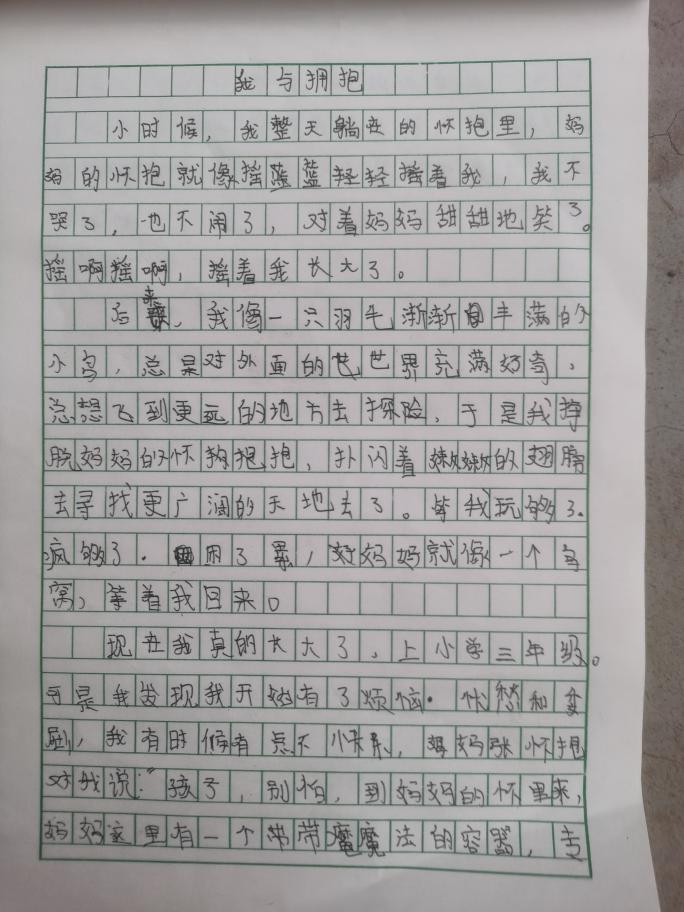 我与拥抱
小时候，我整天躺在的怀抱里，妈
妈的怀抱就像摇篮篮轻轻摇着我，我不
哭了，也不闹了，对着妈妈甜甜地笑了。
摇啊摇啊，摇着我长大了。
后来，我像一只羽毛渐渐丰满的
小鸟，总是对外面的世世界充满好奇，
总想飞到更远的地方去探险，于是我挣
脱妈妈的怀抱抱，扑闪着嫩嫩的翅膀
去寻找更广阔的天地去了。等我玩够了.
疯够了.困了累，妈妈就像一个鸟
窝，等着我回来。
现在我真的长大了，上小学三年级。
可是我发现我开始有了烦恼.忧愁和
我有时候有点不快乐，妈妈张怀抱
对我说：“孩子，别怕，到妈妈的怀里来，
妈妈这里有一个带带魔魔法的容器，专